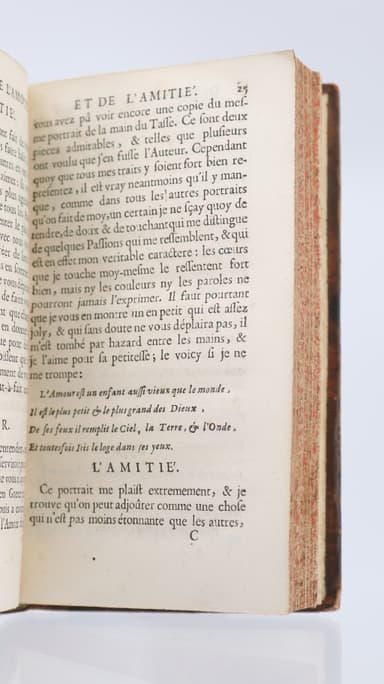 ET DE L'AMITIÉ. 25
vous avez pû voir encore une copie du mes-
me portrait de la main du Tasse. Ce sont deux
pieces admirables, & telles que plusieurs
ont voulu que j'en fusse l'Auteur. Cependant
quoy que tous mes traits y soient fort bien re-
presentez, il est vray neantmoins qu'il y man-
que, comme dans tous les autres portraits
qu'on fait de moy, un certain je ne sçay quoy de
tendre, de doux & de touchant qui me distingue
de quelques Passions qui me ressemblent, & qui
est en effet mon veritable caractere : les cœurs
que je touche moy-mesme le ressentent fort
bien, mais ny les couleurs ny les paroles ne
pourront jamais l'exprimer. Il faut pourtant
que je vous en montre un en petit qui est assez
joly, & qui sans doute ne vous déplaira pas, il
m'est tombé par hazard entre les mains, &
je l'aime pour sa petitesse; le voicy si je ne
me trompe:
L'Amour est un enfant aussi vieux que le monde,
Il est le plus petit & le plus grand des Dieux,
De ses feux il remplit le Ciel, la Terre, & l'Onde,
Et toutesfois Iris le loge dans ses yeux.
L'AMITIÉ.
Ce portrait me plaist extremement, & je
trouve qu'on peut adjoûter comme une chose
qui n'est pas moins étonnante que les autres,
C